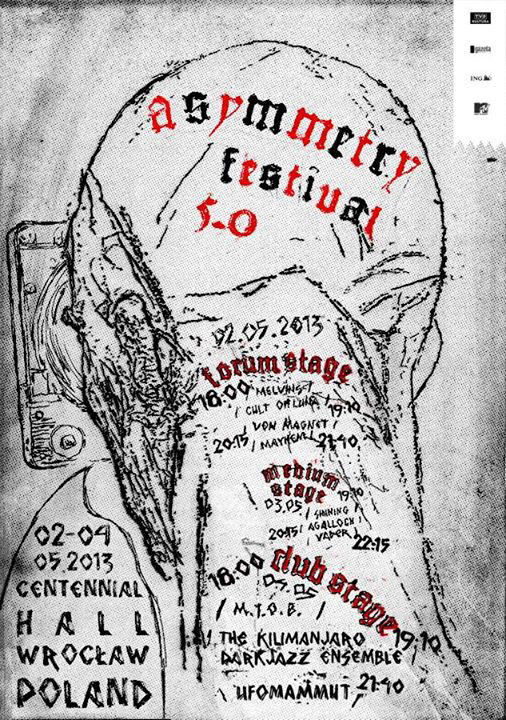 TVP
KULTURA
gazeta
ING
MTV
asymmetry
festival
5.0
02.05.2013
forum stage
18:00 MELVINS /
/ CULT OF LUNA / 19:10
/ VON MAGNET /
20:15 / MAYHEM / 21:40
medium
stage 19:10
03.05 / SHINING /
/ AGALLOCH /
20:15 VADER 22:15
18:00 club stage
04.05
/ M.T.O.B. /
/ THE KILIMANJARO 19:10
DARKJAZZ ENSEMBLE /
/ UFOMAMMUT / 21:40
02-04
05.2013
CENTENNIAL
HALL
WROCŁAW
POLAND